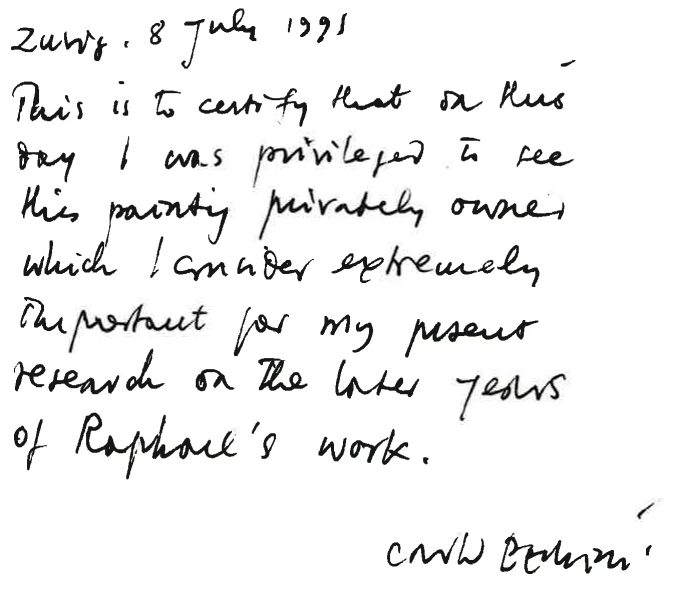 8 July 1991
This is to certify that on this
day I was privileged to see
this painting privately owned
which I consider extremely
important for my present
research on the later years
of Raphael's work.